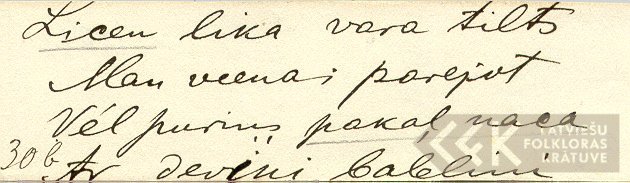 Licen lika vara tilts
Man veenai parejot
Vēl purius pakaļ naca
30b Ar deviņi
LATVIEŠU
FOLKLORAS
KRĀTUVE